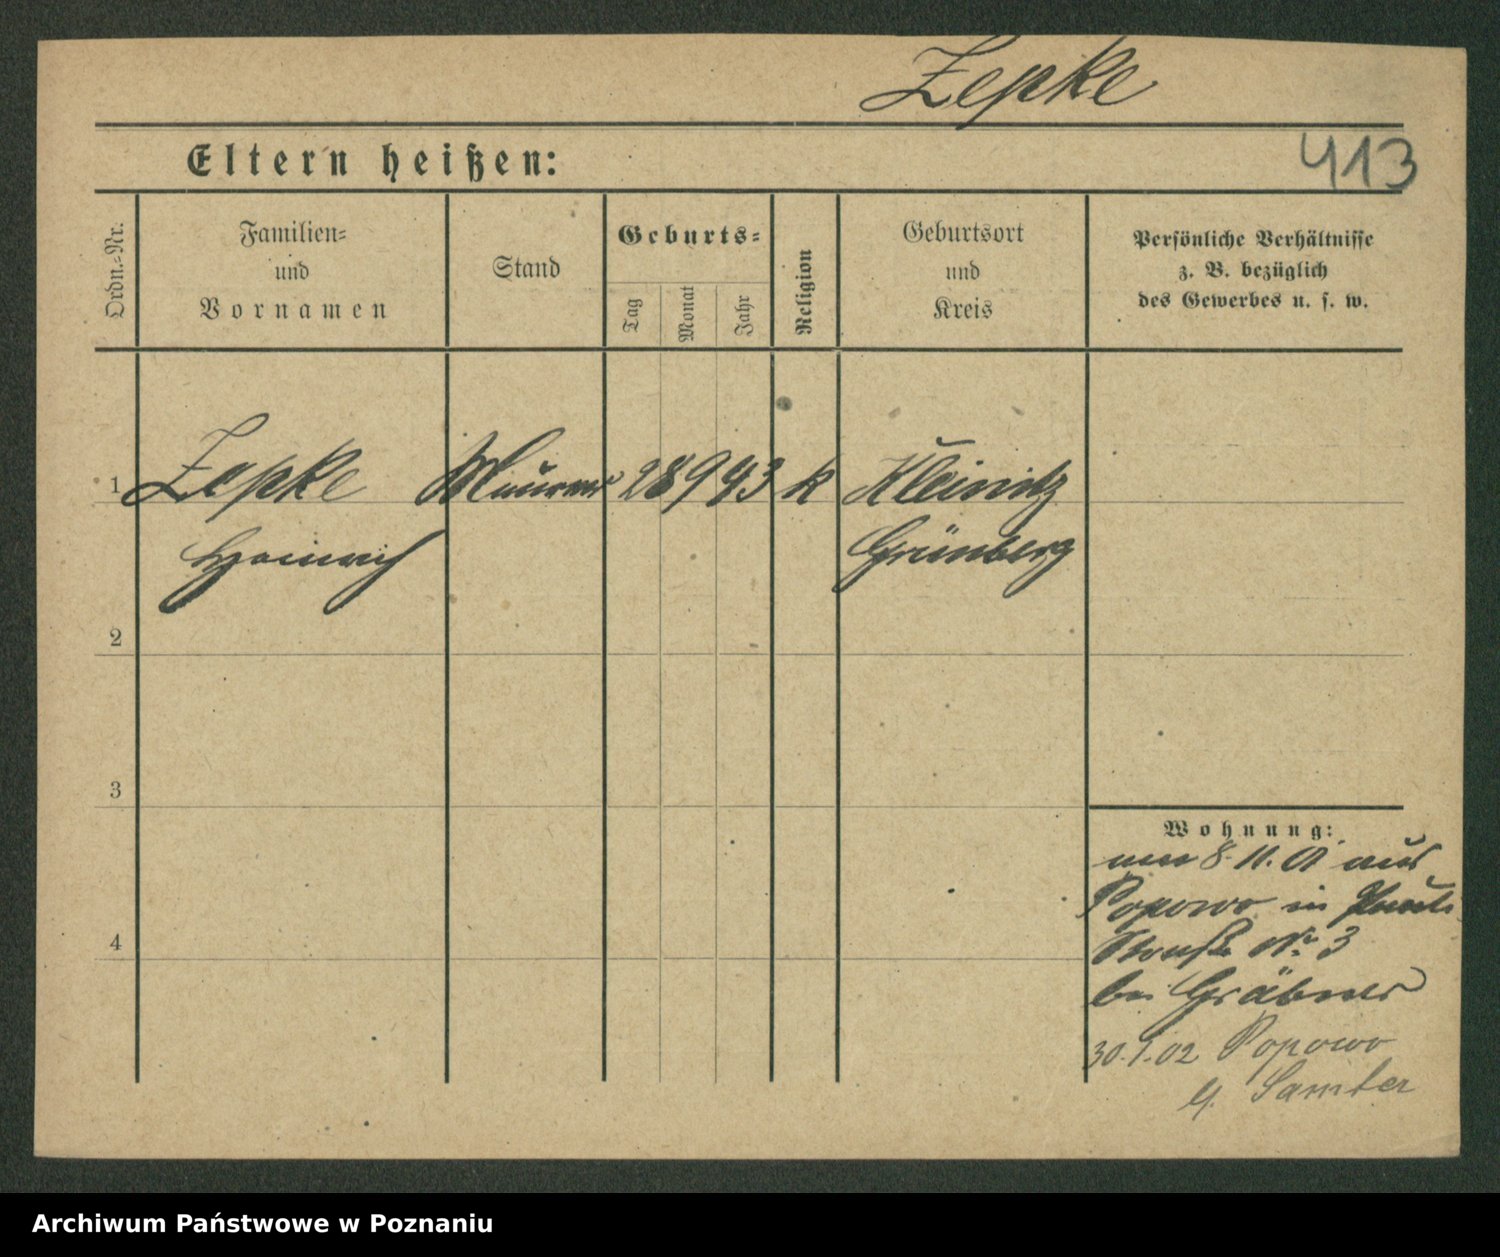 Zepke
Eltern heißen:
413
Ordn.-Nr.
Familien-
und
Vornamen
Stand
Geburts-
Tag
Monat
Jahr
Religion
Geburtsort
und
Kreis
Persönliche Verhältnisse
z. B. bezüglich
des Gewerbes u. s. w.
1 Zepke Maurer 28 9 43 k Kleinitz
Heinrich Grünberg
2
3
4
Wohnung:
8. 11. 01 aus
Popowo in Pauli
Straße No 3
bei Gräbner
30.1.02 Popowo
Samter
Archiwum Państwowe w Poznaniu